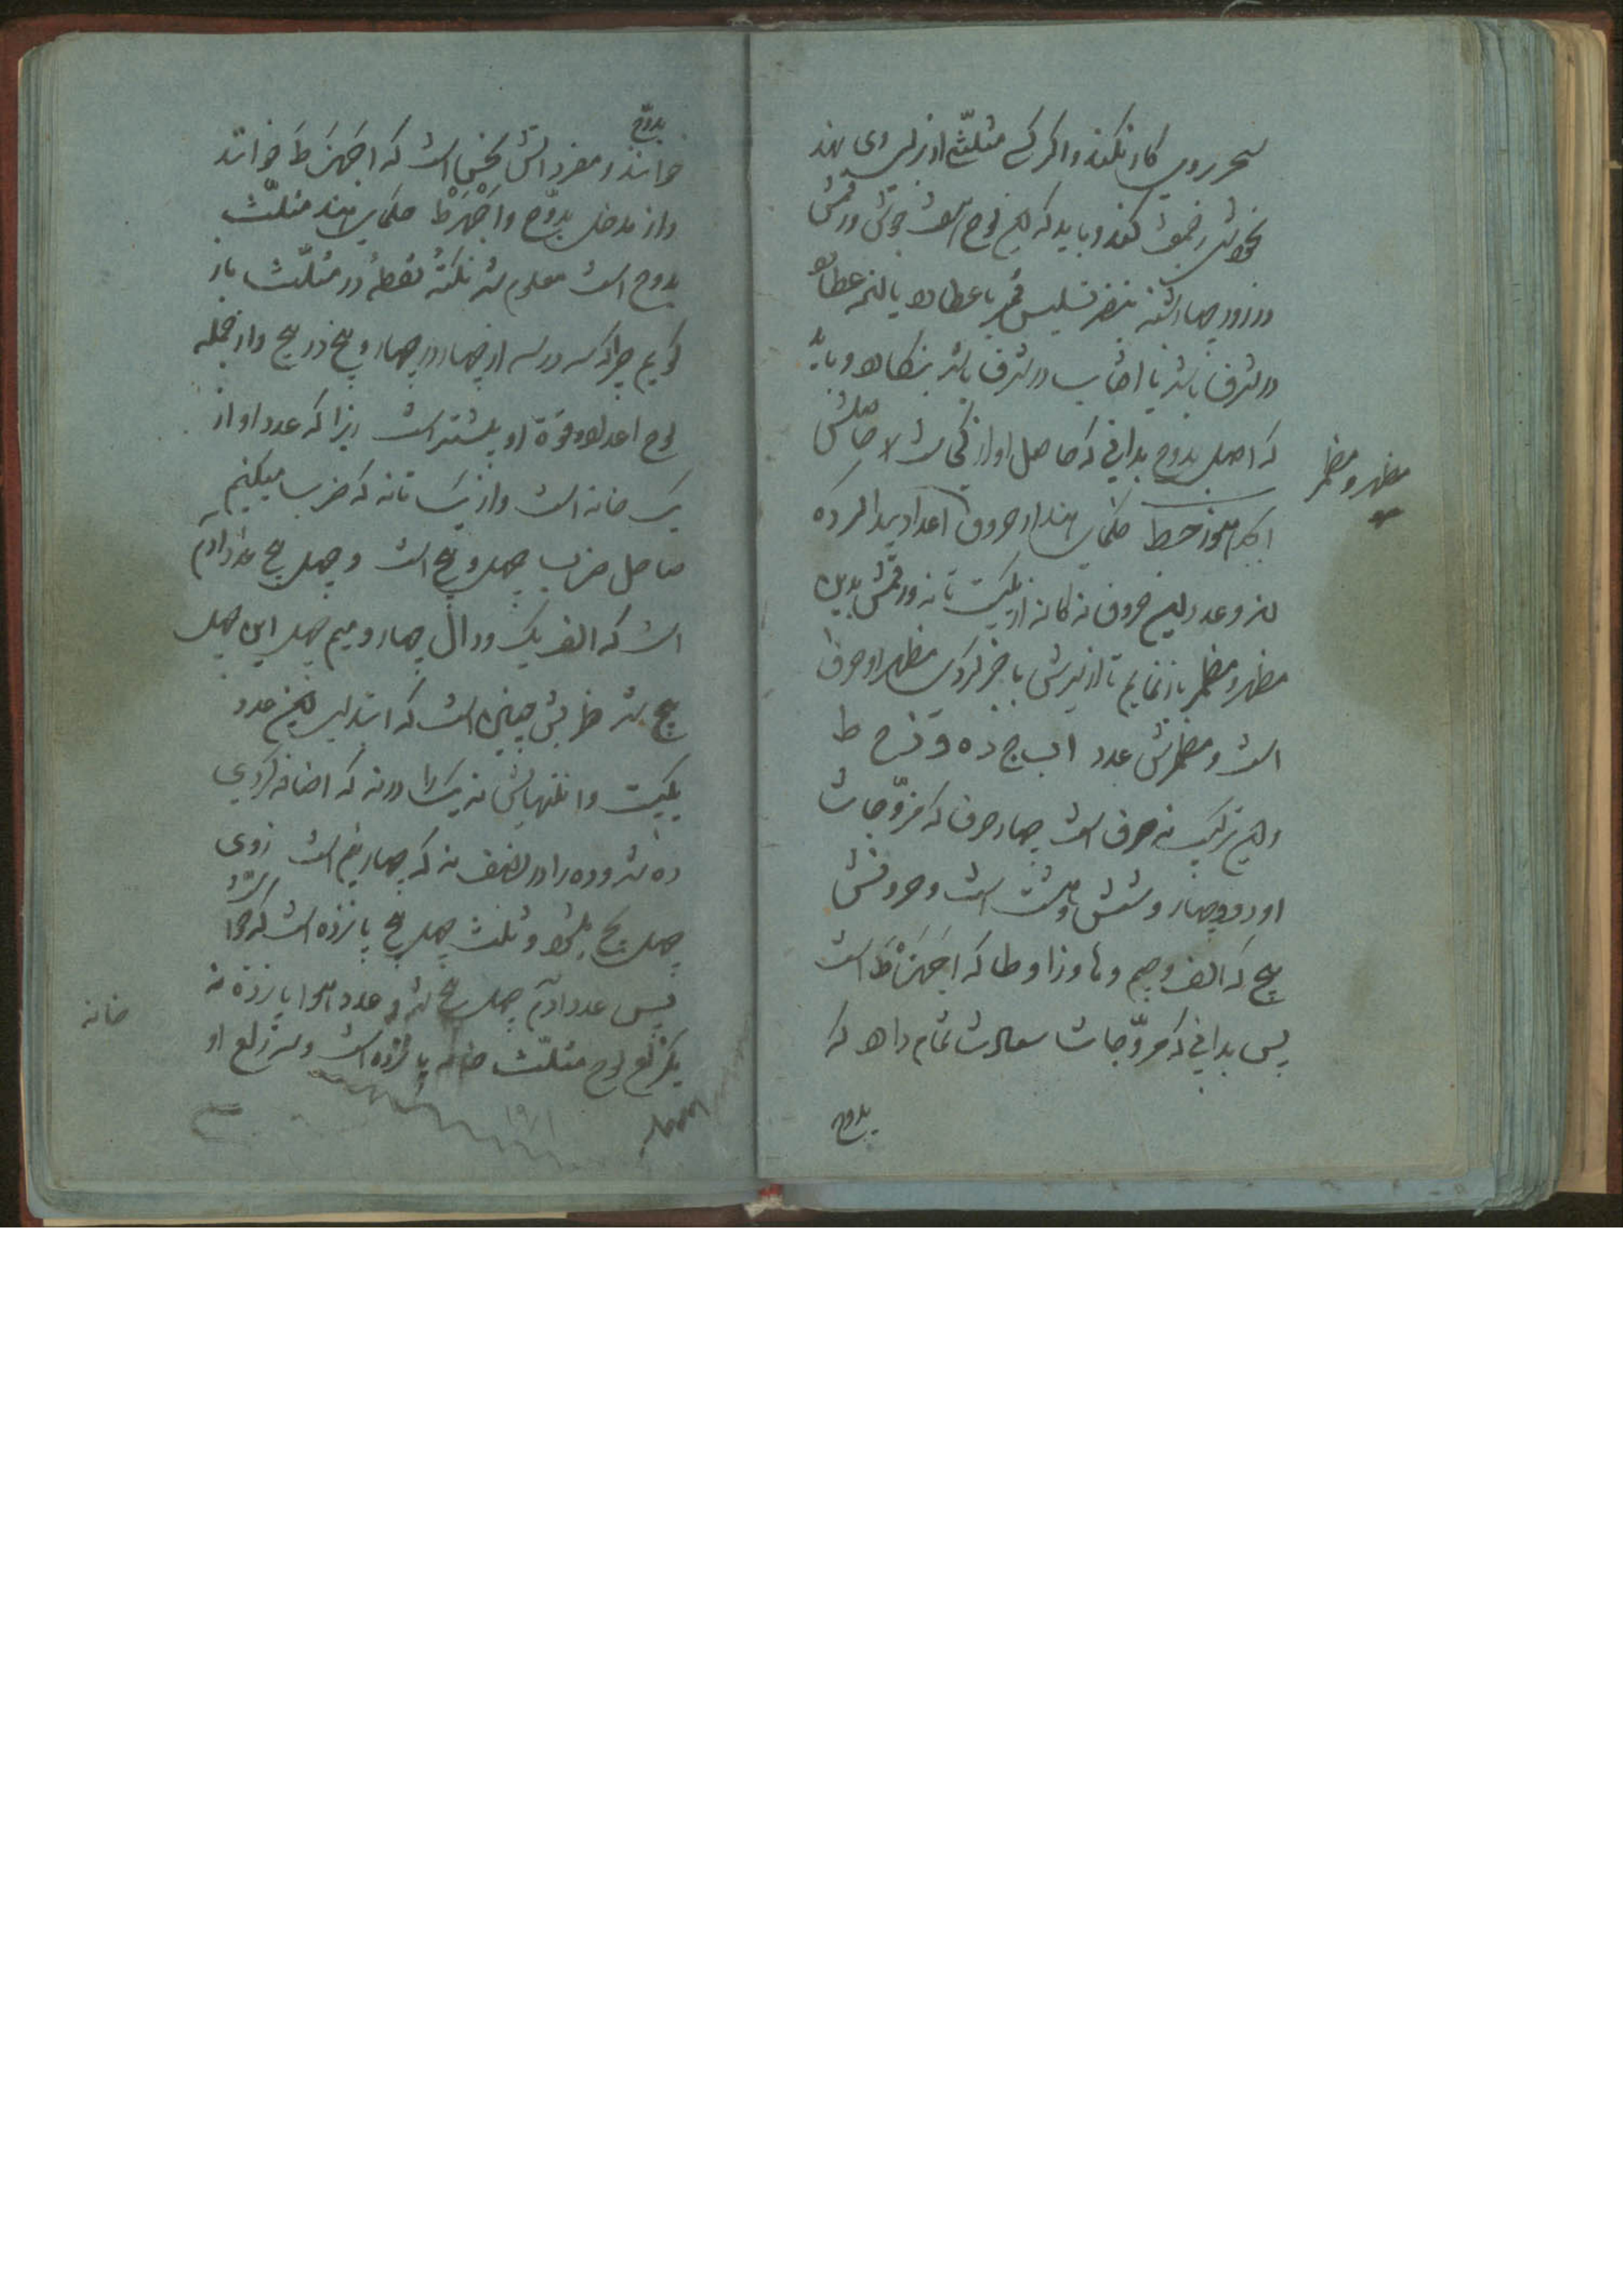 سحر بروی کار نکند و اگر کسی مثلث از بر وی نهد
بخوانش رجعت کند و باید که این لوح است چون در رقمش
در روز چهارشنبه بنظر تسدیس قمر با عطارد یا
در شرف باشد یا آفتاب در شرف باشد بنگارد و باید
که اصل بدوح بدانی که حاصل او از کجاست
مظهر و مضمر
ابجد هوز حطی حکمای هند از حروف اعداد پیدا کرده
اند و عدد این حروف نه گانه از یکیست تا نه و رقمش بدین
مظهر و مضمر باز نمایم تا از سرش با خبر گردی مظهر او حرف
است و مضمرش عدد ا ب ج د ه و ز ح ط
و این ترکیب نه حرف است چهار حرف که مزوّجات
او دو و چهار و شش و هشت است و حروفش
پنج که الف و جیم و ها و زا و طا که اَجَهَزَط است
پس بدانی که مزوّجات سعادت تمام دارد که
بدوح
بدوّح
خوانند و مفرداتش نحس است که اجهزط خوانند
و از مدخل بدوّح و اجهزط حکمای هند مثلّث
بدوح است معلوم شد نکتهٔ نقطهٔ در مثلّث باز
گویم چرا که سه در سه از چهار در چهار و پنج در پنج و از جمله
لوح اعداد و قوة او بیشتر است زیرا که عدد او از
یک خانه است و از یک تا نه که ضرب میکنیم
حاصل ضرب چهل و پنج است و چهل پنج عدد آدم
است که الف یک و دال چهار و میم چهل این چهل
پنج شد ضربش چنین است که ابتدای این عدد
یکیست و انتهایش نه یک را در نه که اضافه کردی
ده شد و ده را در نصف نه که چهار نیم است زدی
چهل پنج شود و ثلث چهل پنج پانزده است که حوّا
پس عدد آدم چهل پنج شد و عدد حوا پانزده نه
خانه
یکضلع لوح مثلّث خانه پانزده است و سه ضلع او
۱۹۷۱